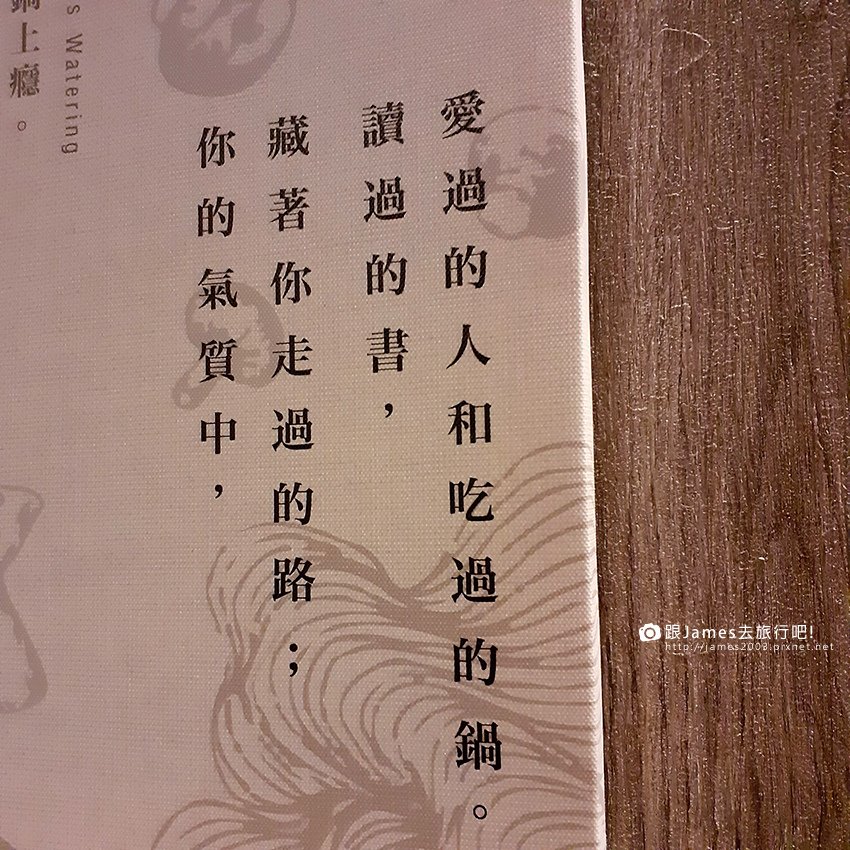 鍋上癮。
s Watering
你的氣質中，
藏著你走過的路；
讀過的書，
愛過的人和吃過的鍋。
跟James去旅行吧!
http://james2003.pixnet.net